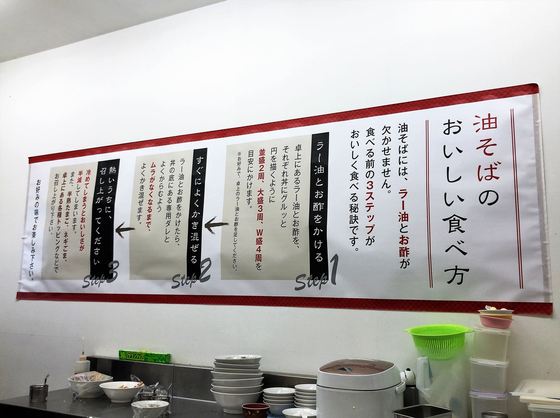 油そばの
おいしい食べ方
油そばには、ラー油とお酢が
欠かせません。
食べる前の3ステップが
おいしく食べる秘訣です。
ラー油とお酢をかける
Step1
卓上にあるラー油とお酢を、
それぞれ丼にグルッと
円を描くように
並盛2周、大盛3周、W盛4周を
目安にかけます。
すぐによくかき混ぜる
Step2
ラー油とお酢をかけたら、
丼の底にある専用ダレと
よくからむよう
ムラがなくなるまで、
よくかき混ぜます。
熱いうちに、
召し上がってください
Step3
冷めてしまうとおいしさが
半減してしまいます。
お好みの味でお楽しみ下さい。